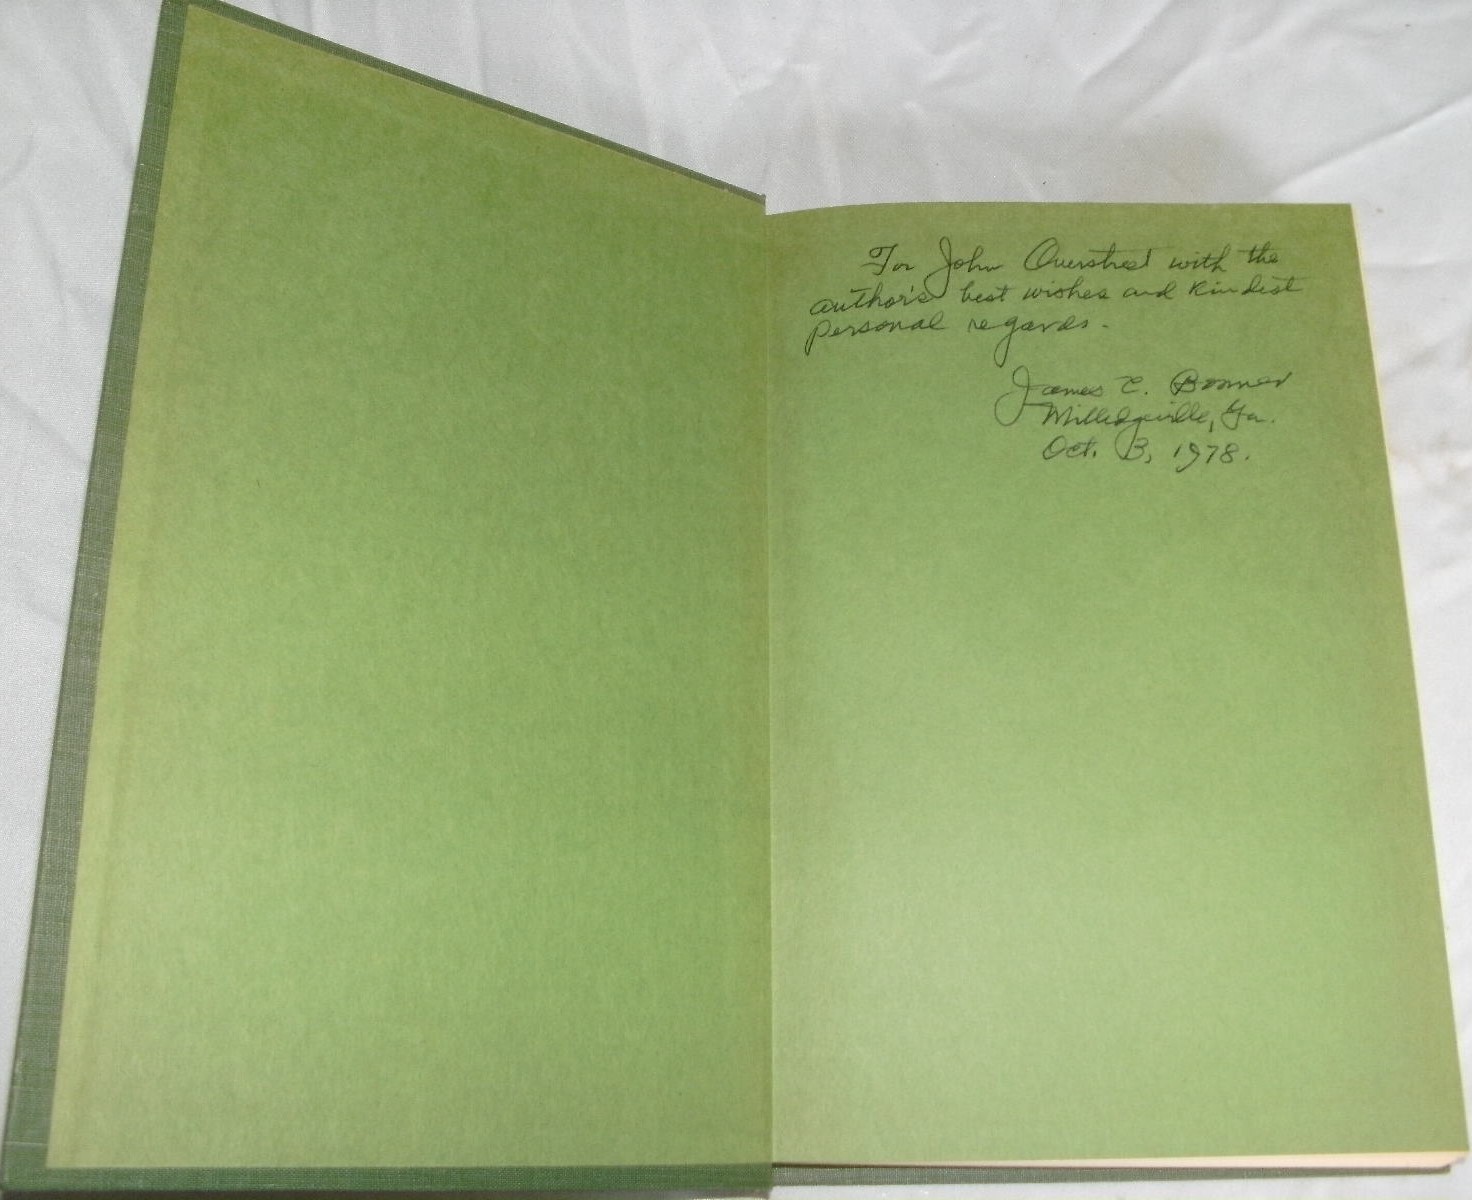 For John Overstreet with the
author's best wishes and kindest
personal regards.
James C. Bonner
Milledgeville, Ga.
Oct. 3, 1978.